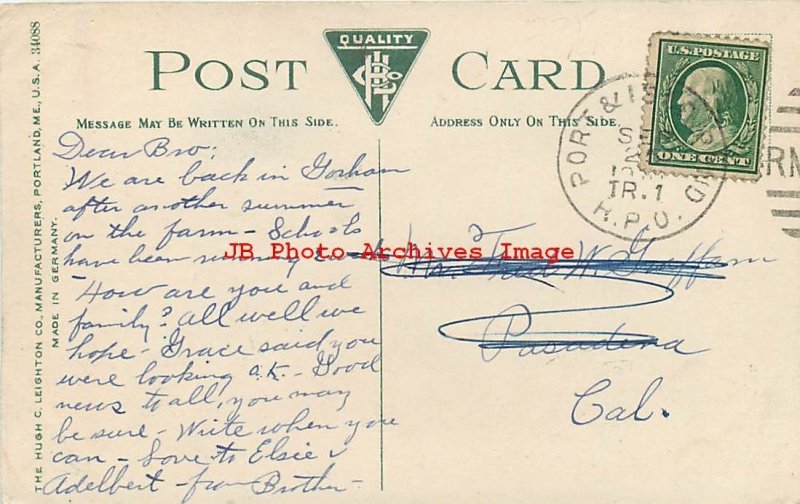 THE HUGH C. LEIGHTON CO., MANUFACTURERS, PORTLAND, ME., U.S.A. 34088
MADE IN GERMANY.
POST CARD
QUALITY
MESSAGE MAY BE WRITTEN ON THIS SIDE.
ADDRESS ONLY ON THIS SIDE.
U.S. POSTAGE
ONE CENT
PORT & ISL
TR. 1
R.P.O.
Dear Bro;
We are back in Gorham
after another summer
on the farm - Schools
have been running
JB Photo-Archives Image
How are you and
family? All well we
hope - Grace said you
were looking o.k. - Good
news to all, you may
be sure - Write when you
can - Love to Elsie &
Adelbert - from Brother -
W.
Pasadena
Cal.